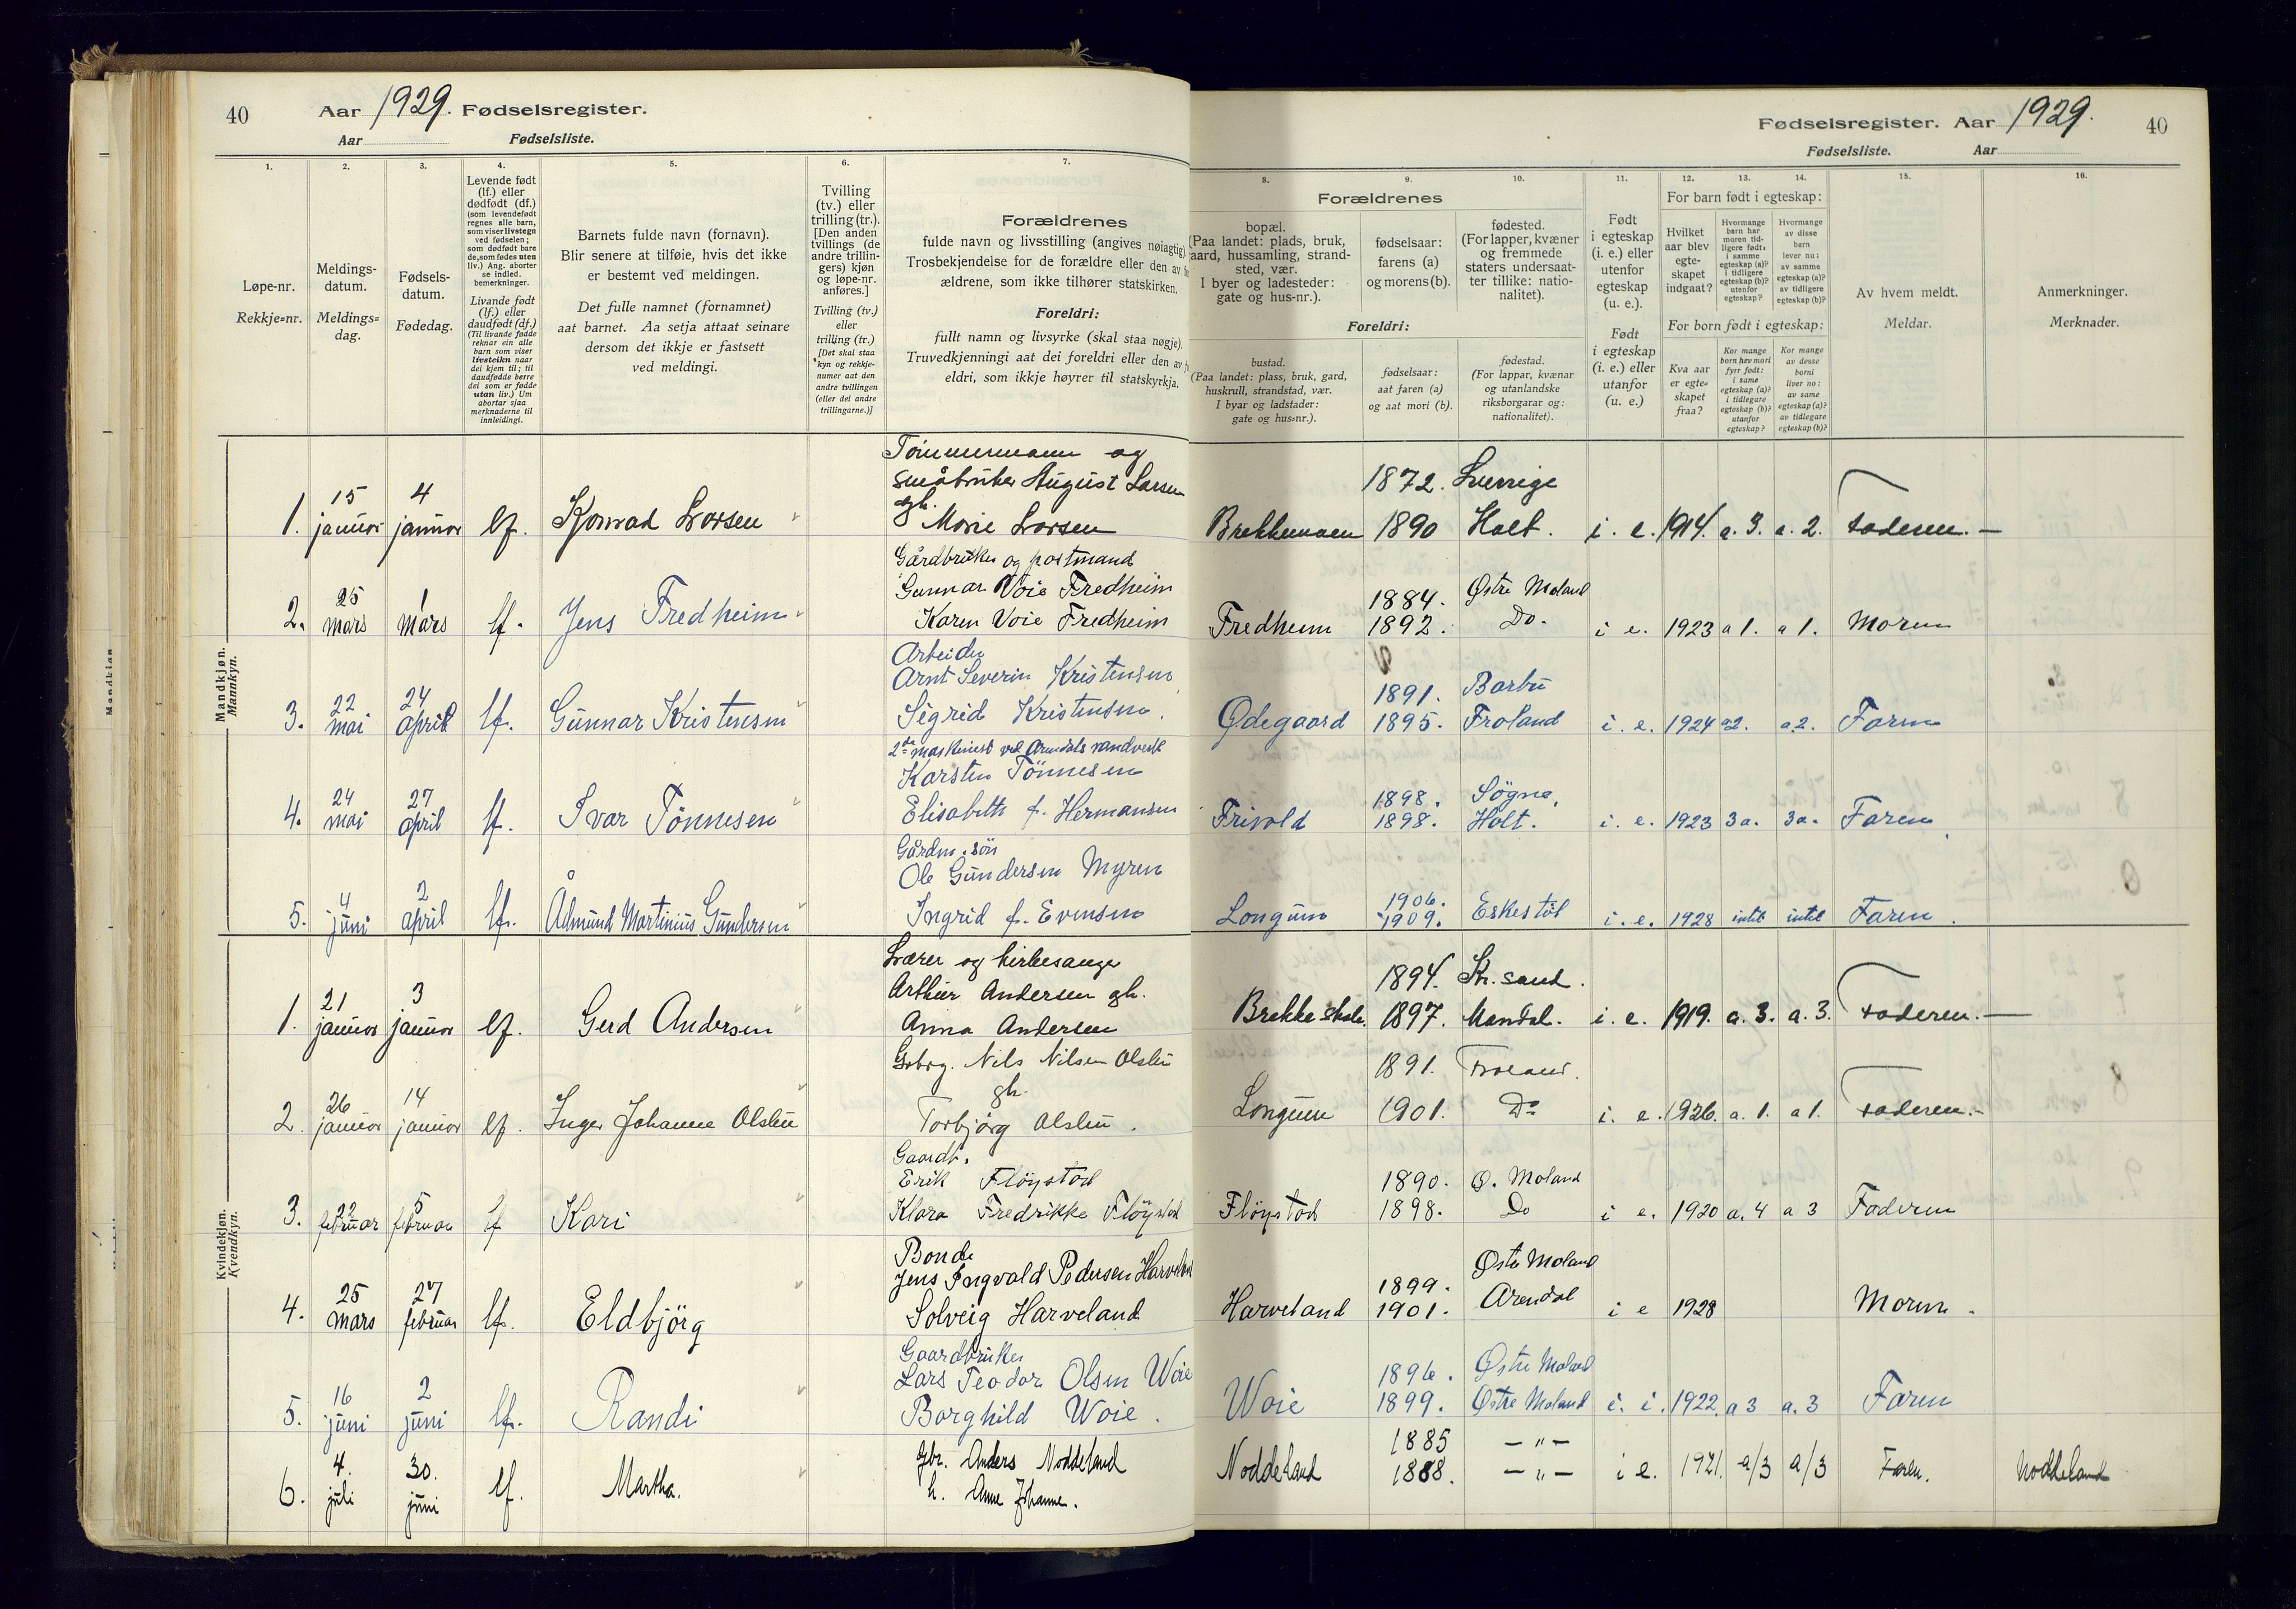 40 Aar 1929. Fødselsregister.
Aar Fødselsliste.
Fødselsregister. Aar 1929. 40
Fødselsliste. Aar
1. 2. 3. 4. 5. 6. 7. 8. 9. 10. 11. 12. 13. 14. 15. 16.
Løpe-nr.
Rekkje=nr.
Meldings-
datum.
Meldings=
dag.
Fødsels-
datum.
Fødedag.
Levende født
(lf.) eller
dødfødt (df.)
(som levendefødt
regnes alle barn,
som viser livstegn
ved fødselen;
som dødfødt bare
de, som fødes uten
liv.) Ang. aborter
se indled.
bemerkninger.
Livande født
(lf.) eller
daudfødt (df.)
(Til livande fødde
reknar ein alle
born som viser
livsteikn naar
dei kjem til; til
daudfødde berre
dei som er fødde
utan liv.) Um
abortar sjaa
merknaderne til
innleidingi.
Barnets fulde navn (fornavn).
Blir senere at tilføie, hvis det ikke
er bestemt ved meldingen.
Det fulle namnet (fornamnet)
aat barnet. Aa setja attaat seinare
dersom det ikkje er fastsett
ved meldingi.
Tvilling
(tv.) eller
trilling (tr.).
[Den anden
tvillings (de
andre trillin-
gers) kjøn
og løpe-nr.
anføres.]
Tvilling (tv.)
eller
trilling (tr.)
[Det skal staa
kyn og rekkje-
numer aat den
andre tvillingen
(eller dei andre
trillingarne.)]
Forældrenes
fulde navn og livsstilling (angives nøiagtig).
Trosbekjendelse for de forældre eller den av
ældrene, som ikke tilhører statskirken.
Foreldri:
fullt namn og livsyrke (skal staa nøgje).
Truvedkjenningi aat dei foreldri eller den av
eldri, som ikkje høyrer til statskyrkja.
Forældrenes
bopæl.
(Paa landet: plads, bruk,
gaard, hussamling, strand-
sted, vær.
I byer og ladesteder:
gate og hus-nr.).
fødselsaar:
farens (a)
og morens (b).
fødested.
(For lapper, kvæner
og fremmede
staters undersaat-
ter tillike: natio-
nalitet).
Foreldri:
bustad.
(Paa landet: plass, bruk, gard,
huskrull, strandstad, vær.
I byar og ladstader:
gate og hus=nr.).
fødselsaar:
aat faren (a)
og aat mori (b).
fødestad.
(For lappar, kvænar
og utanlandske
riksborgarar og:
nationalitet).
Født
i egteskap
(i. e.) eller
utenfor
egteskap
(u. e.).
Født
i egteskap
(i. e.) eller
utanfor
(u. e.)
For barn født i egteskap:
Hvilket
aar blev
egte-
skapet
indgaat?
Hvormange
barn har
moren tid-
ligere født:
i samme
egteskap (a)?
i tidligere
egteskap (b)?
utenfor
egteskap?
Hvormange
av disse
barn
lever nu:
av samme
egteskap (a)?
av tidligere
egteskap (b)?
For born født i egteskap:
Kva aar
er egte=
skapet
fraa?
Kor mange
born hev mori
fyrr født:
i same
egteskap (a)?
i tidlegare
egteskap (b)?
utanfor
egteskap?
Kor mange
av desse
borni
liver no:
av same
egteskap (a)?
av tidlegare
egteskap (b)?
Av hvem meldt.
Meldar.
Anmerkninger.
Merknader.
Mandkjøn.
Mannkyn.
Tømmermann og
småbruker August Larsen
gh.
1. 15 januar 4 januar lf. Konrad Larsen Marie Larsen Brekkemoen 1872. 1890 Sverrige Holt. i. e. 1914. a. 3. a. 2. Faderen.—
Gårdbruker og postmand
Gunnar Voie Fredheim
2. 25 mars 1 mars lf. Jens Fredheim Karen Voie Fredheim Fredheim 1884. 1892. Østre Moland Do. i e. 1923 a 1. a 1. Moren
Arbeider
Arnt Severin Kristensen
3. 22 mai 24 april lf. Gunnar Kristensen Sigrid Kristensen. Ødegaard 1891. 1895. Barbu Froland i. e. 1924 a2. a2. Faren
2den maskinist ved Arendals vandverk
Karsten Tönnesen
4. 24 mai 27 april lf. Ivar Tönnesen Elisabeth f. Hermansen Frivold 1898. 1898. Sögne, Holt. i. e. 1923 3a. 3a. Faren
Gårdm. sön
Ole Gundersen Myren
5. 4 juni 2 april lf. Ådmund Martinius Gundersen Ingrid f. Evensen Longum 1906. 1909. Eskestöl i. e. 1928 intet intet Faren.
Kvindekjøn.
Kvendkyn.
Lærer og kirkesanger
Arthur Andersen gh.
1. 21 januar 3 januar lf. Gerd Andersen Anna Andersen Brekke skole. 1894. 1897. Kr. sand. Mandal. i. e. 1919. a. 3. a. 3. Faderen.—
Nils Nilsen Olsbu
gh.
2. 26 januar 14 januar lf. Inger Johanne Olsbu Torbjørg Olsbu. Longum 1891. 1901. Froland. Do i. e. 1926. a. 1. a 1. Faderen.-
Gaardb.
Erik Flöystad
3. 22 februar 5 februar lf Kari Klara Fredrikke Flöystad Flöystad 1890. 1898. Ø. Moland Do i e. 1920 a. 4 a 3 Faderen
Bonde
Jens Ingvald Pedersen Harveland
4. 25 mars 27 februar lf. Eldbjörg Solveig Harveland Harveland 1899. 1901. Østre Moland Arendal i e 1928 Moren.
Gaardbruker
Lars Teodor Olsen Woie
5. 16 juni 2 juni lf. Randi Borghild Woie. Woie 1896. 1899. Østre Moland Østre Moland i. i. 1922. a 3 a. 3 Faren
Gbr. Anders Noddeland
6. 4. juli 30. juni lf. Martha. h. Anne Johanne. Noddeland 1885 1888 —"— —"— i e. 1921. a/3 a/3 Faren. Noddeland